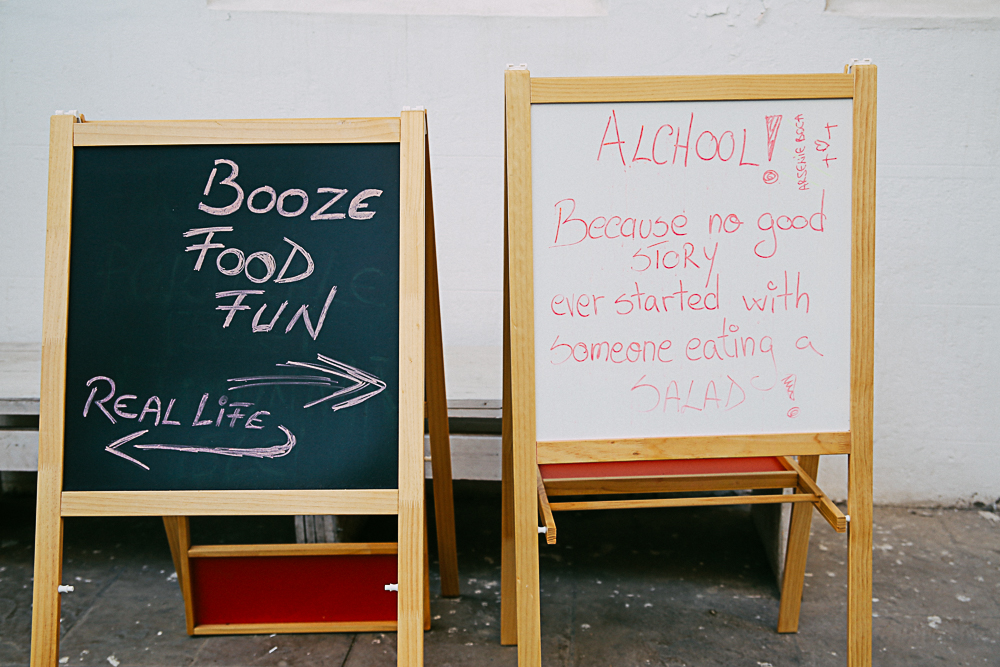 BOOZE
FOOD
FUN
REAL LIFE
ALCHOOL!
ARSENIE BOCA
Because no good
STORY
ever started with
someone eating a
SALAD!